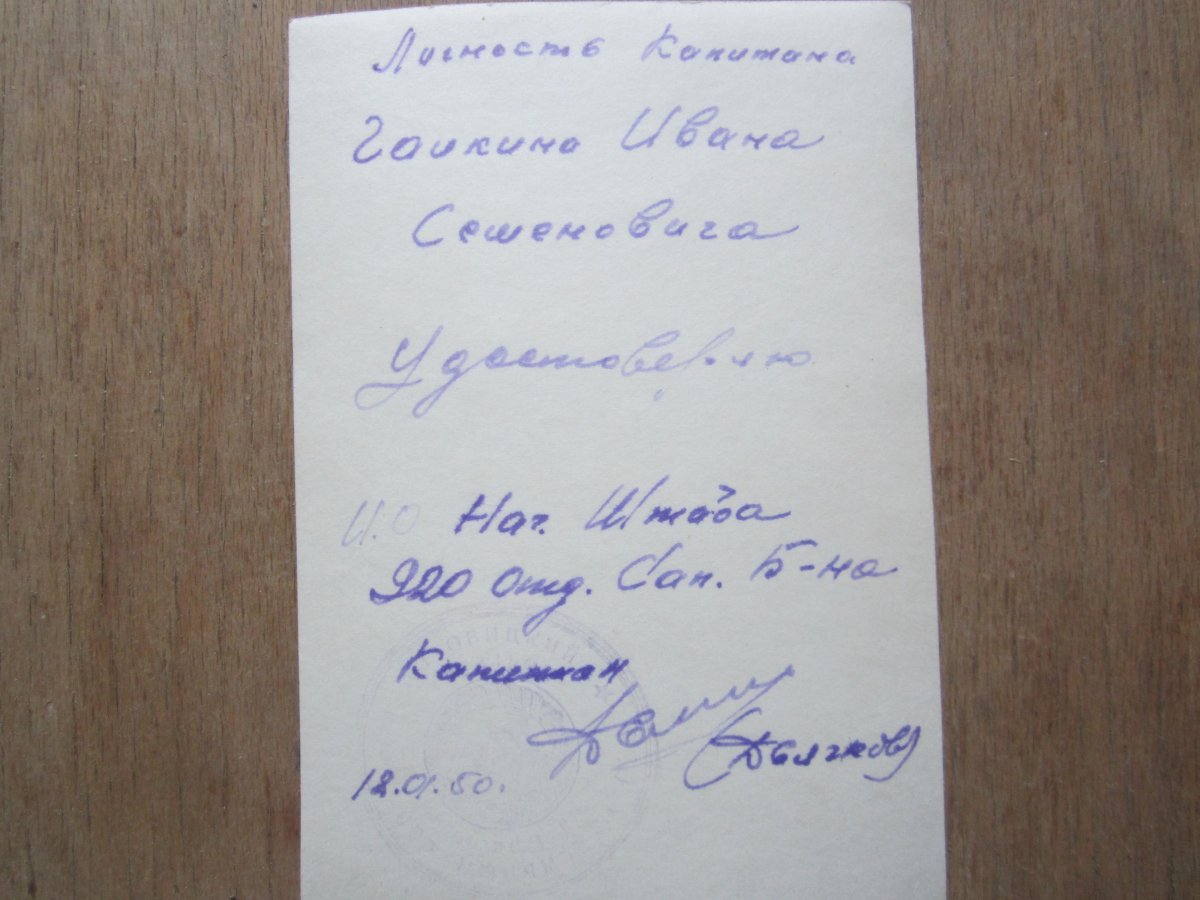 Личность Капитана
Галкина Ивана
Семеновича
Удостоверяю
И.О Нач. Штаба
220 Отд. Сап. Б-на
Капитан